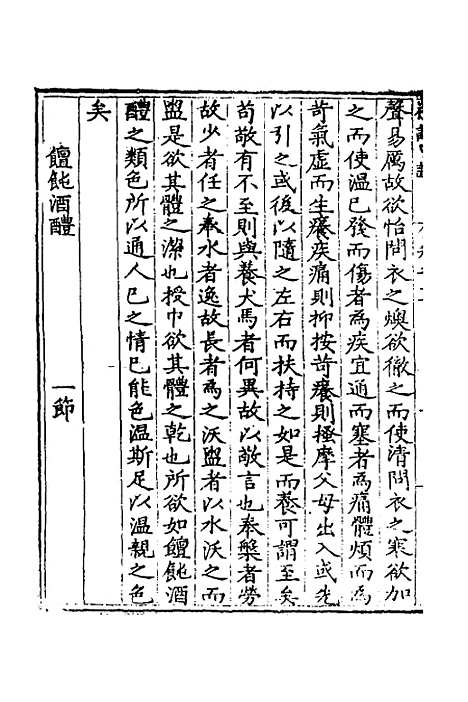 聲易厲故欲怡問衣之燠欲徹之而使清問衣之寒欲加
之而使温已發而傷者為疾宜通而塞者為痛體煩而為
苛氣虛而生癢疾痛則抑按苛癢則搔摩父母出入或先
以引之或後以隨之左右而扶持之如是而養可謂至矣
苟敬有不至則與養犬馬者何異故以敬言也奉槃者勞
故少者任之奉水者逸故長者為之沃盥者以水沃之而
盥是欲其體之潔也授巾欲其體之乾也所欲如饘飽酒
醴之類色所以通人己之情已能色温斯足以温親之色
矣
饘飽酒醴　一節